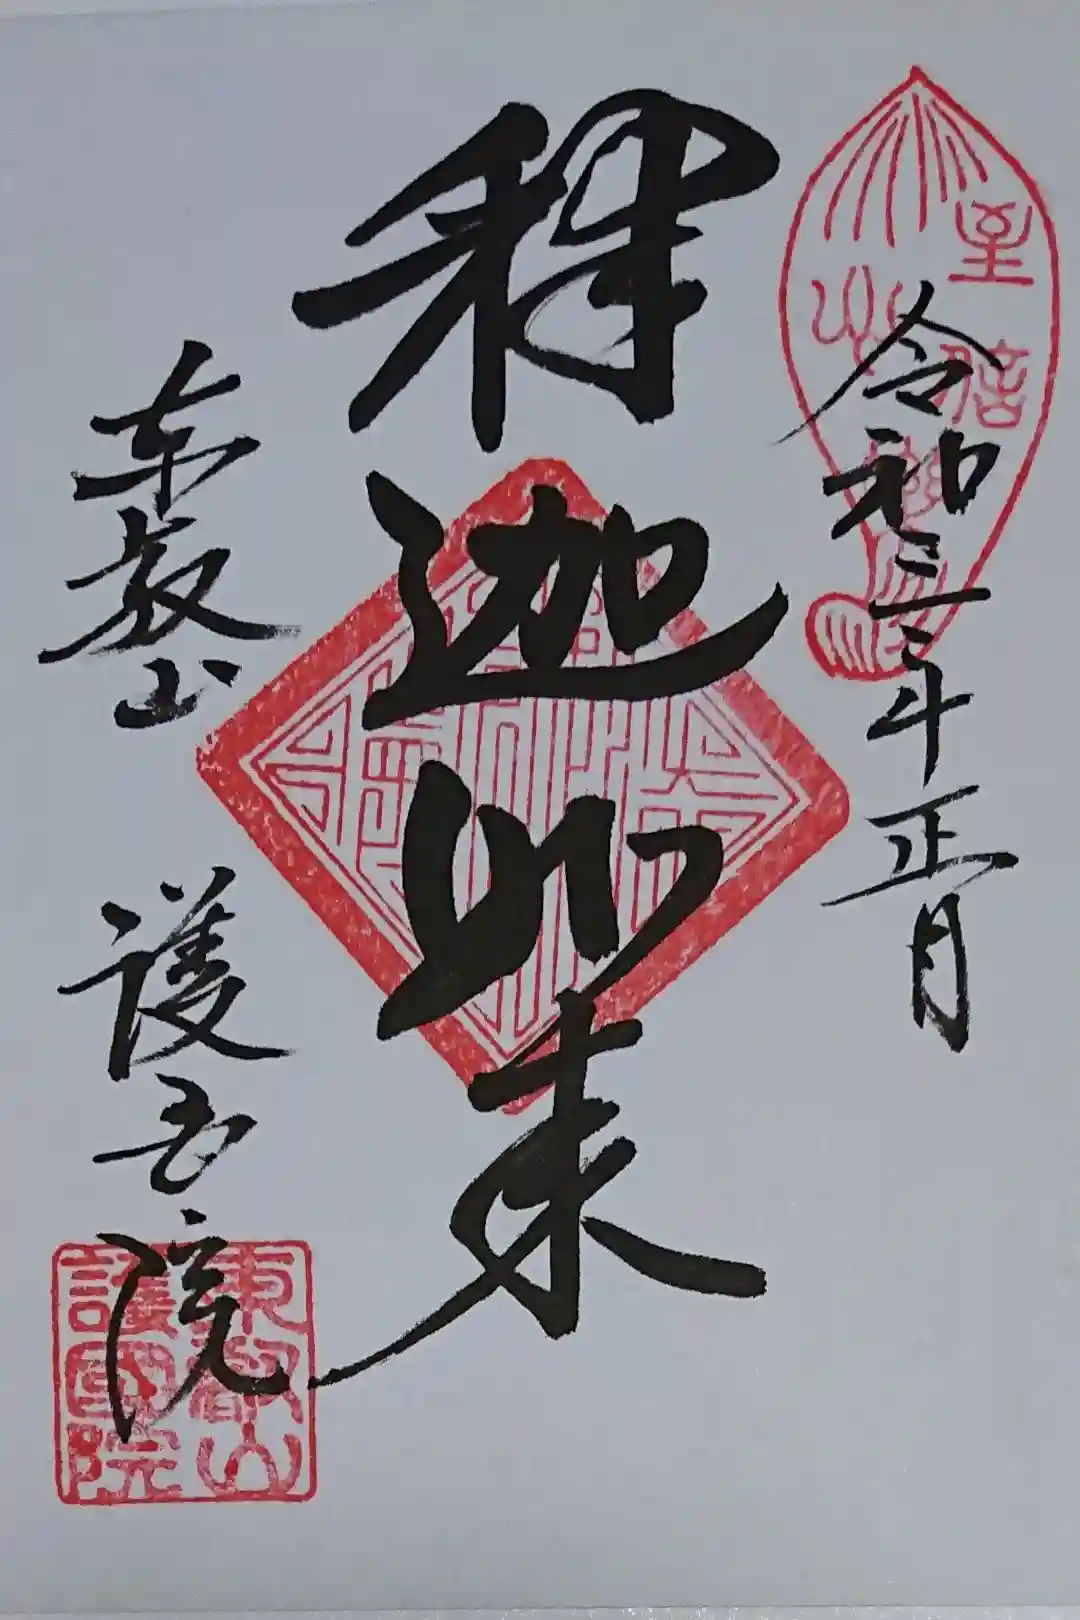 令和三年正月
釈迦如来
東叡山 護国院
東叡山
護國院